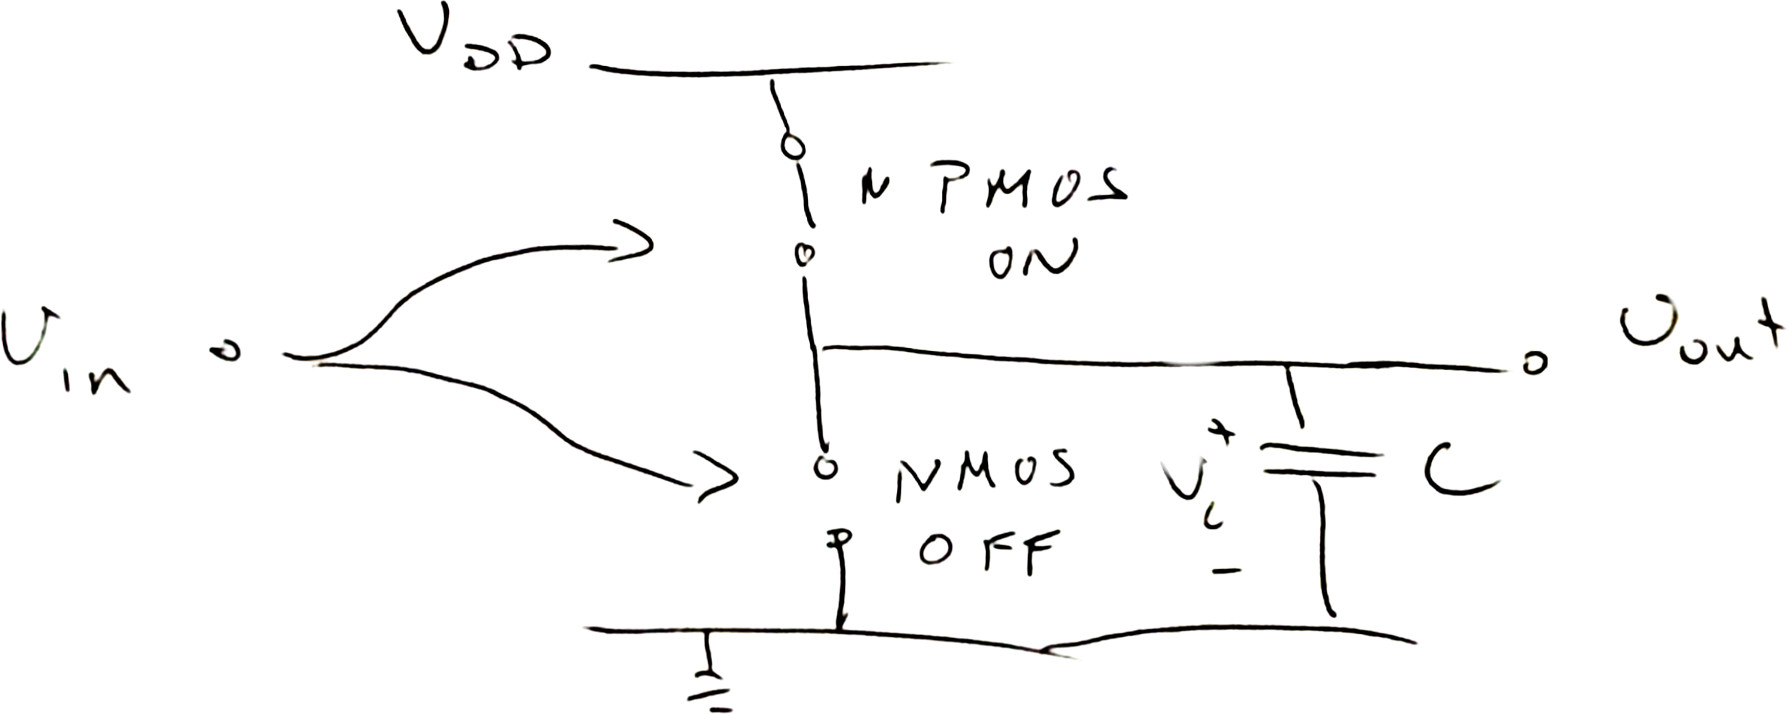 V_DD
N PMOS
ON
V_in
V_out
NMOS
OFF
+
V_C
-
C